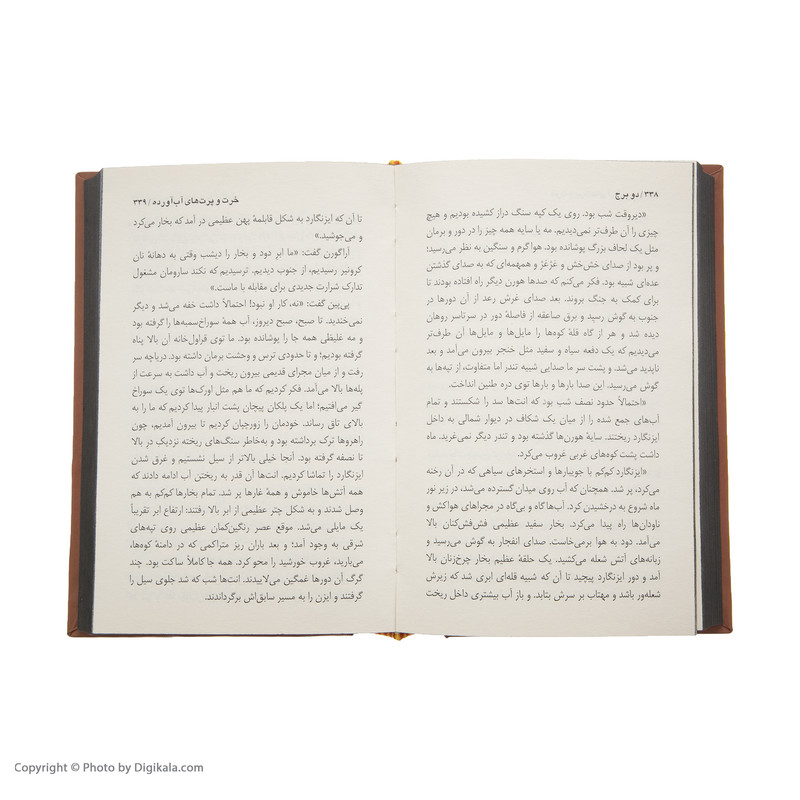 ۳۳۸/ دو برج
«دیروقت شب بود. روی یک کپه سنگ دراز کشیده بودیم و هیچ
چیزی را آن طرف‌تر نمی‌دیدیم. مه یا سایه همه چیز را در دور و برمان
مثل یک لحاف بزرگ پوشانده بود. هوا گرم و سنگین به نظر می‌رسید؛
و پر بود از صدای خش‌خش و غژغژ و همهمه‌ای که به صدای گذشتن
عده‌ای شبیه بود. فکر می‌کنم که صدها هورن دیگر راه افتاده بودند تا
برای کمک به جنگ بروند. بعد صدای غرش رعد از آن دورها در
جنوب به گوش رسید و برق صاعقه از فاصلهٔ دور در سرتاسر روهان
دیده شد و هر از گاه قلهٔ کوه‌ها را مایل‌ها و مایل‌ها آن طرف‌تر
می‌دیدیم که یک دفعه سیاه و سفید مثل خنجر بیرون می‌آمد و بعد
ناپدید می‌شد. و پشت سر ما صدایی شبیه تندر اما متفاوت، از تپه‌ها به
گوش می‌رسید. این صدا بارها و بارها توی دره طنین انداخت.
«احتمالاً حدود نصف شب بود که انت‌ها سد را شکستند و تمام
آب‌های جمع شده را از میان یک شکاف در دیوار شمالی به داخل
ایزنگارد ریختند. سایهٔ هورن‌ها گذشته بود و تندر دیگر نمی‌غرید. ماه
داشت پشت کوه‌های غربی غروب می‌کرد.
«ایزنگارد کم‌کم با جویبارها و استخرهای سیاهی که در آن رخنه
می‌کرد، پر شد. همچنان که آب روی میدان گسترده می‌شد، در زیر نور
ماه شروع به درخشیدن کرد. آب‌ها گاه و بی‌گاه در مجراهای هواکش و
ناودان‌ها راه پیدا می‌کرد. بخار سفید عظیمی فش‌فش‌کنان بالا
می‌آمد. دود به هوا برمی‌خاست. صدای انفجار به گوش می‌رسید و
زبانه‌های آتش شعله می‌کشید. یک حلقهٔ عظیم بخار چرخ‌زنان بالا
آمد و دور ایزنگارد پیچید تا آن که شبیه قله‌ای ابری شد که زیرش
شعله‌ور باشد و مهتاب بر سرش بتابد. و باز آب بیشتری داخل ریخت
خرت و پرت‌های آب‌آورده /۳۳۹
تا آن که ایزنگارد به شکل قابلمهٔ پهن عظیمی در آمد که بخار می‌کرد
و می‌جوشید.»
آراگورن گفت: «ما ابر دود و بخار را دیشب وقتی به دهانهٔ نان
کرونیر رسیدیم، از جنوب دیدیم. ترسیدیم که نکند سارومان مشغول
تدارک شرارت جدیدی برای مقابله با ماست.»
پی‌پین گفت: «نه، کار او نبود! احتمالاً داشت خفه می‌شد و دیگر
نمی‌خندید. تا صبح، صبح دیروز، آب همهٔ سوراخ‌سمبه‌ها را گرفته بود
و مه غلیظی همه جا را پوشانده بود. ما توی قراول‌خانه آن بالا پناه
گرفته بودیم؛ و تا حدودی ترس و وحشت برمان داشته بود. دریاچه سر
رفت و از میان مجرای قدیمی بیرون ریخت و آب داشت به سرعت از
پله‌ها بالا می‌آمد. فکر کردیم که ما هم مثل اورک‌ها توی یک سوراخ
گیر می‌افتیم؛ اما یک پلکان پیچان پشت انبار پیدا کردیم که ما را به
بالای تاق رساند. خودمان را زورچپان کردیم تا بیرون آمدیم، چون
راهروها ترک برداشته بود و به‌خاطر سنگ‌های ریخته نزدیک در بالا
تا نصفه گرفته بود. آنجا خیلی بالاتر از سیل نشستیم و غرق شدن
ایزنگارد را تماشا کردیم. انت‌ها آن قدر به ریختن آب ادامه دادند که
همه آتش‌ها خاموش و همهٔ غارها پر شد. تمام بخارها کم‌کم به هم
وصل شدند و به شکل چتر عظیمی از ابر بالا رفتند: ارتفاع ابر تقریباً
یک مایلی می‌شد. موقع عصر رنگین‌کمان عظیمی روی تپه‌های
شرقی به وجود آمد؛ و بعد باران ریز متراکمی که در دامنهٔ کوه‌ها،
می‌بارید، غروب خورشید را محو کرد. همه جا کاملاً ساکت بود. چند
گرگ آن دورها غمگین می‌لاییدند. انت‌ها شب که شد جلوی سیل را
گرفتند و ایزن را به مسیر سابق‌اش برگرداندند.
Copyright © Photo by Digikala.com